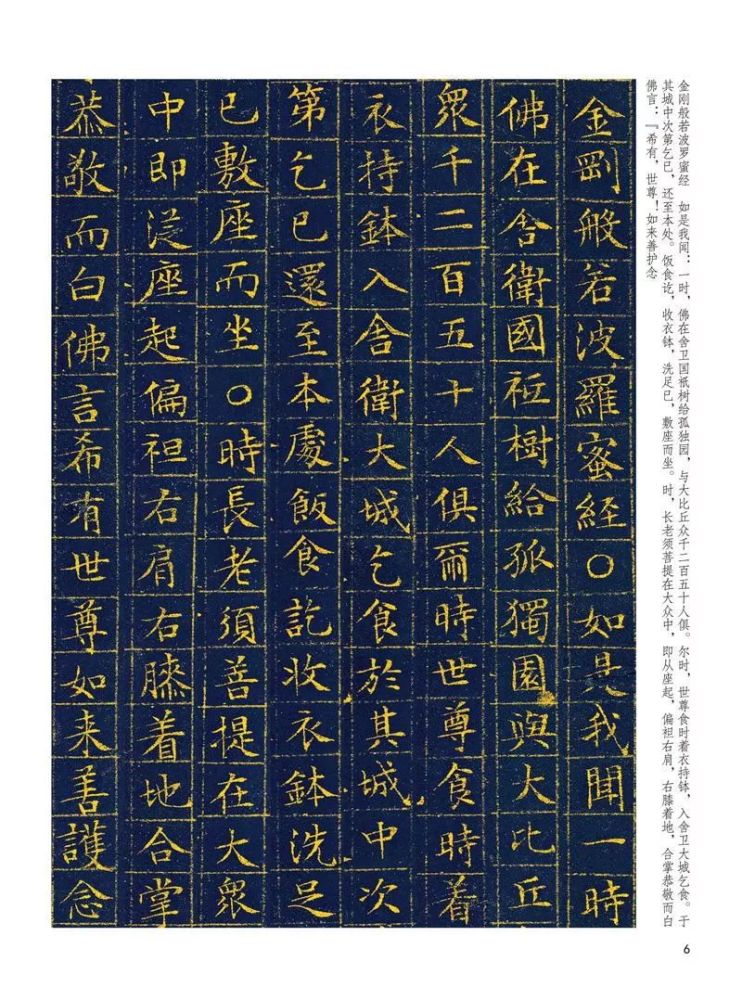 金刚般若波罗蜜经　如是我闻：一时，佛在舍卫国祇树给孤独园，与大比丘众千二百五十人俱。尔时，世尊食时着衣持钵，入舍卫大城乞食。于
其城中次第乞已，还至本处。饭食讫，收衣钵，洗足已，敷座而坐。时，长老须菩提在大众中，即从座起，偏袒右肩，右膝着地，合掌恭敬而白
佛言：『希有，世尊！如来善护念
金剛般若波羅蜜經〇如是我聞一時
佛在舍衛國祇樹給孤獨園與大比丘
衆千二百五十人俱爾時世尊食時着
衣持鉢入舍衛大城乞食於其城中次
第乞已還至本處飯食訖收衣鉢洗足
已敷座而坐〇時長老須菩提在大衆
中即從座起偏袒右肩右膝着地合掌
恭敬而白佛言希有世尊如来善護念
6